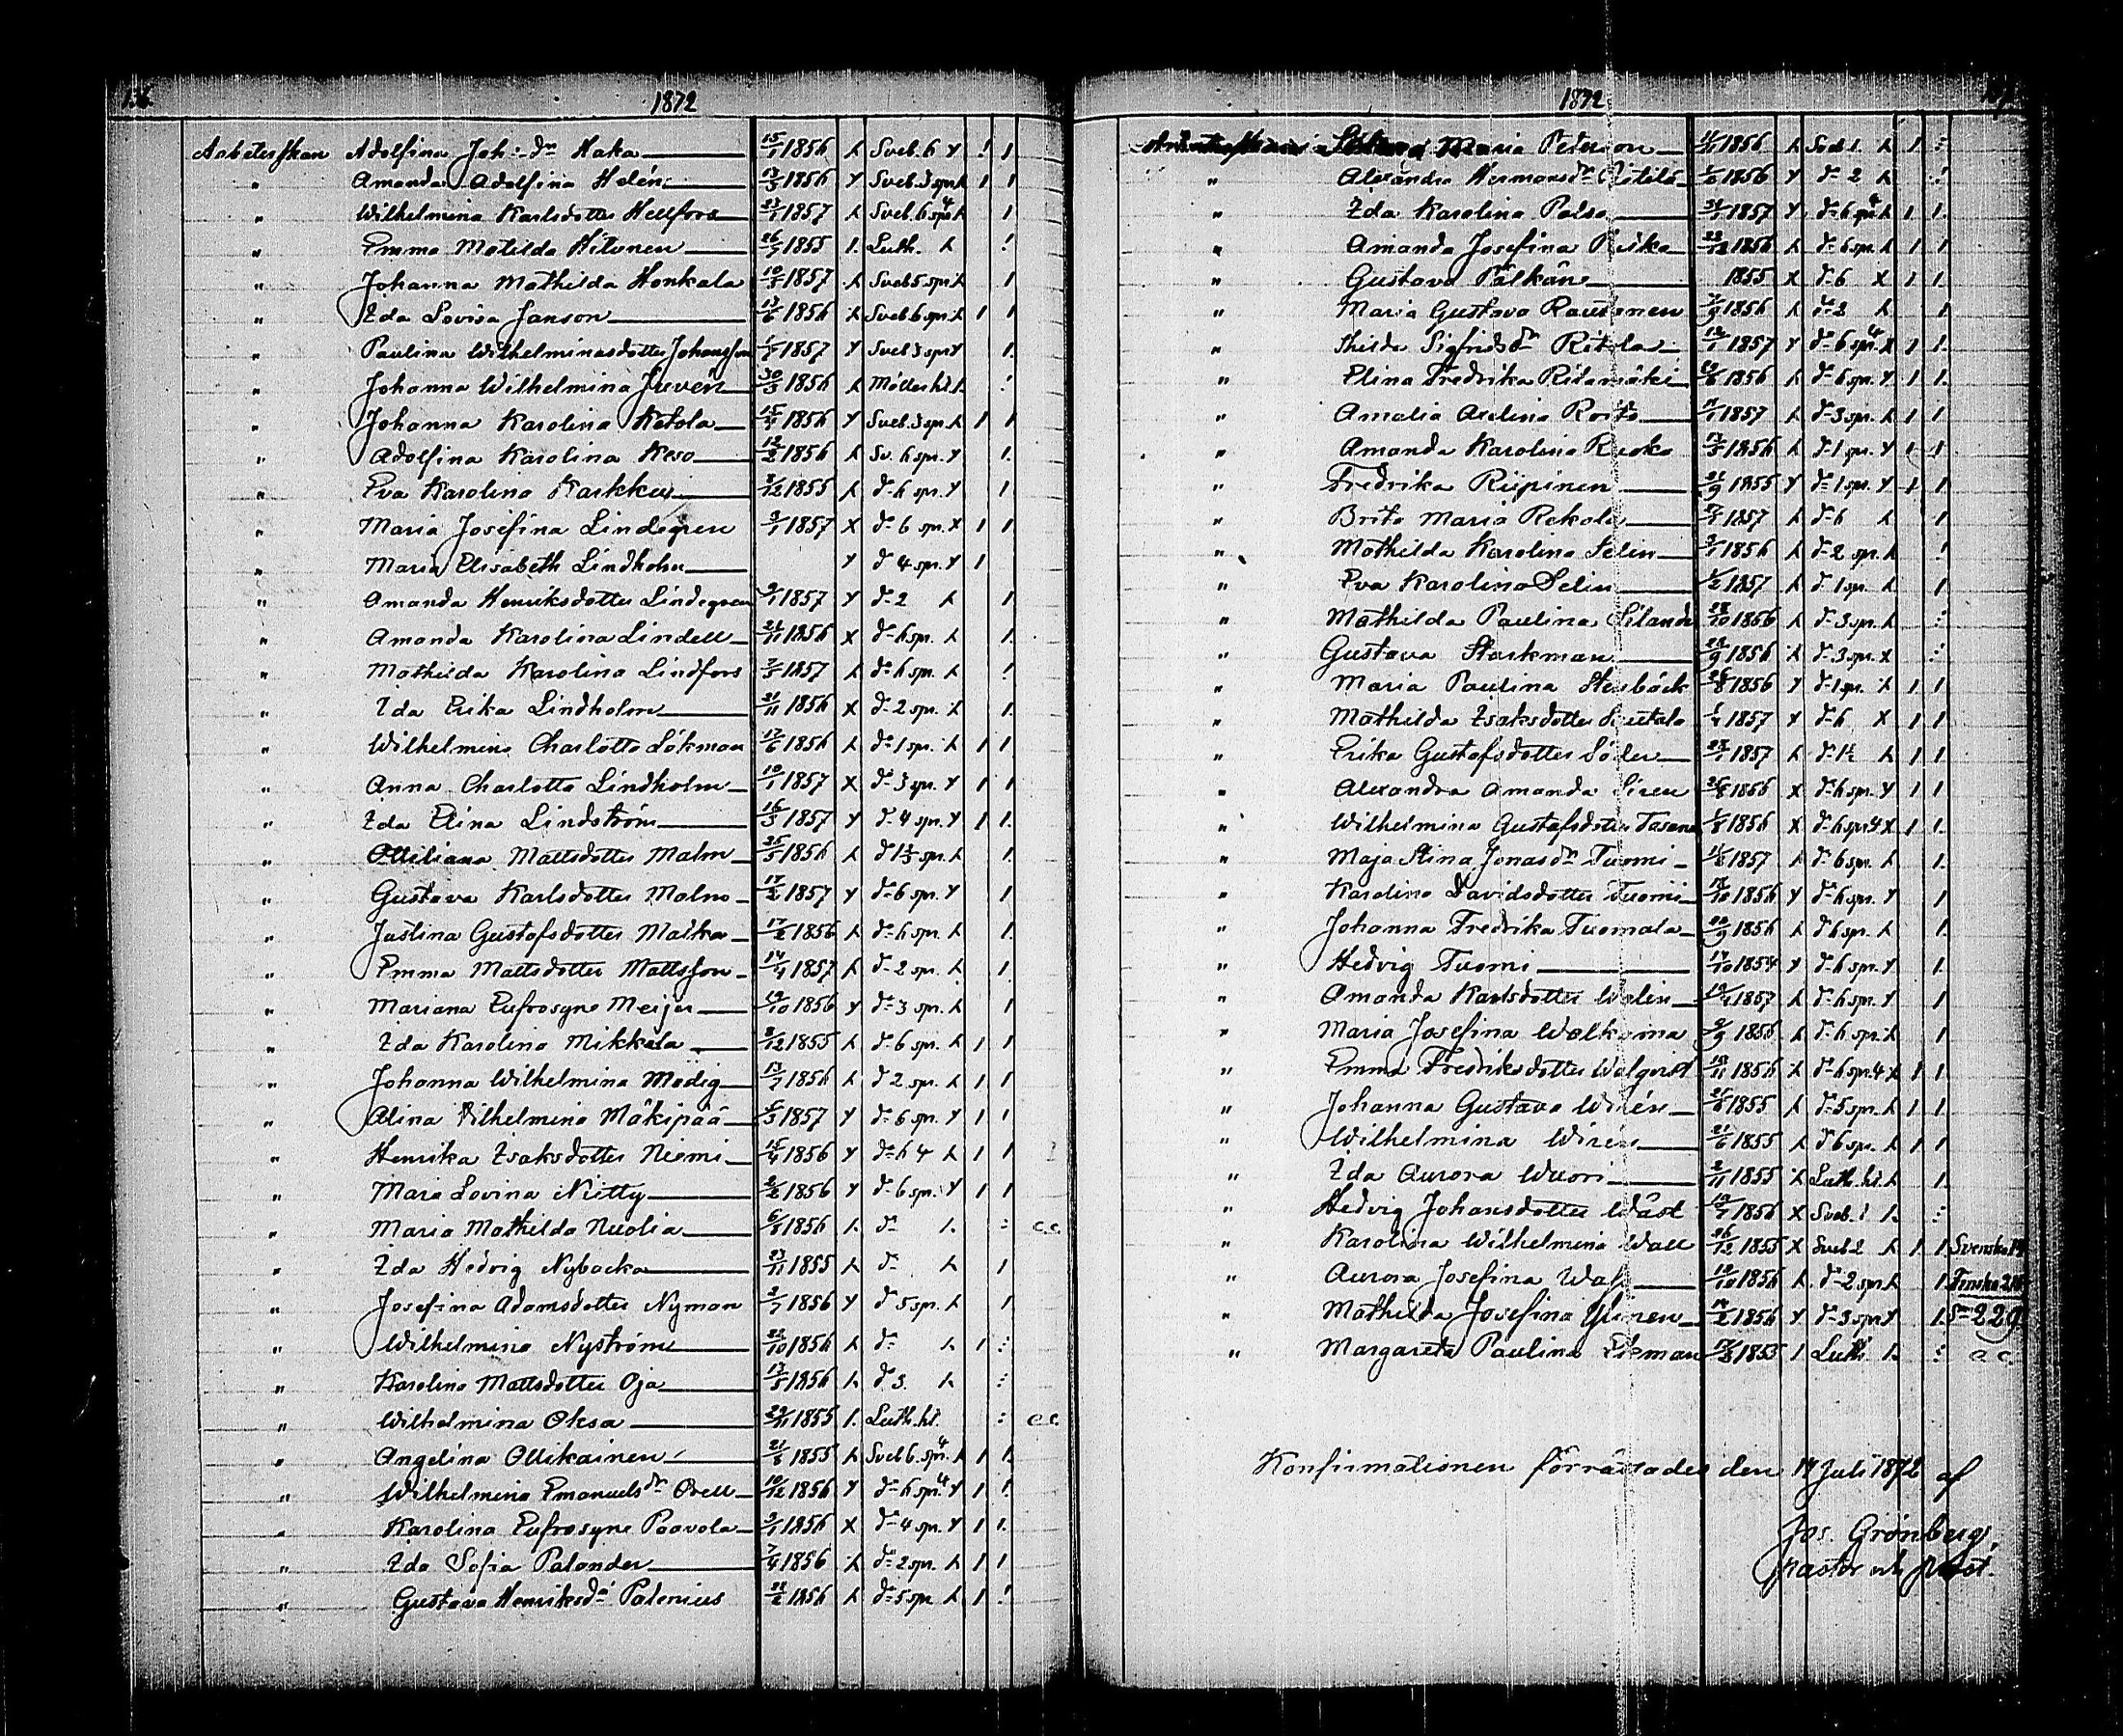 136.
1872
Arbeterskan Adolfina Joh:dr Haka 15/1 1856 h Sveb. 6 Y 1 1
" Amanda Adolfina Helén 13/5 1856 Y Sveb. 3 spr h 1 1
" Wilhelmina Karlsdotter Hellfors 23/1 1857 h Sveb. 6 spr 4 h 1
" Emma Matilda Hitonen 26/7 1855 1. Luth. h 1
" Johanna Mathilda Honkala 10/5 1857 h Sveb 5 spr h 1
" Ida Lovisa Janson 13/6 1856 h Sveb 6 spr. h 1 1
" Paulina Wilhelminasdotter Johansson 1857 Y Sveb 3 spr Y 1.
" Johanna Wilhelmina Juvén 30/3 1856 h
" Johanna Karolina Ketola 15/4 1856 Y Sveb. 3 spr. h 1 1
" Adolfina Karolina Keso 12/2 1856 h Sv. 6 spr. Y 1.
" Eva Karolina Karkku 12 1855 h do 6 spr. Y 1
" Maria Josefina Lindegren 3/1 1857 X do 6 spr. X 1 1
" Maria Elisabeth Lindholm Y do 4 spr. Y 1
" Amanda Henriksdotter Lindegren 1857 Y do 2 h 1.
" Amanda Karolina Lindell 21/11 1856 X do 6 spr. h 1.
" Mathilda Karolina Lindfors 1857 h do 6 spr. h 1
" Ida Erika Lindholm 21/11 1856 X do 2 spr. h 1.
" Wilhelmina Charlotta Lökman 17/6 1856 h do 1 spr. h 1 1
" Anna Charlotta Lindholm 10/1 1857 X do 3 spr. Y 1 1
" Ida Elina Lindström 16/5 1857 Y do 4 spr. Y 1 1.
" Ottiliana Mattsdotter Malm 25/5 1856 h do spr. h 1.
" Gustava Karlsdotter Malmo 17/2 1857 Y do 6 spr. Y 1
" Justina Gustafsdotter Matka 17/2 1856 h do 6 spr. h 1.
" Emma Mattsdotter Mattsson 14/4 1857 h do 2 spr. h 1
" Mariana Eufrosyne Meijer 19/10 1856 Y do 3 spr. h 1
" Ida Karolina Mikkola 12 1855 h do 6 spr. h 1 1
" Johanna Wilhelmina Modig 13/7 1856 h do 2 spr. h 1 1
" Alina Vilhelmina Mäkipää 5/3 1857 Y do 6 spr. Y 1 1
" Henrika Isaksdotter Niemi 15/4 1856 Y do 6 4 h 1 1
" Maria Lovina Nitty 1856 Y do 6 spr. Y 1 1
" Maria Mathilda Nuolia 6/8 1856 h do h : c.c.
" Ida Hedvig Nybacka 23/11 1855 h do h 1
" Josefina Adamsdotter Nyman 2/7 1856 Y do 5 spr. h 1.
" Wilhelmina Nyström 22/10 1856 h do h 1 :
" Karolina Mattsdotter Oja 13/5 1856 h do 3. h :
" Wilhelmina Oksa 29/11 1855 1. Luth. hl. : c.c.
" Angelina Ollikainen 21/8 1855 h Sveb 6 spr. 4 h 1 1.
" Wilhelmina Emanuelsdr Orell 10/12 1856 Y do 6 spr. 4 Y 1 1.
" Karolina Eufrosyne Paavola 3/1 1856 X do 4 spr. Y 1 1.
" Ida Sofia Palander 7/4 1856 h do 2 spr. h 1 1
" Gustava Henriksdr Palenius 22/2 1856 h do 5 spr h 1 1
1872
Maria Peterson 1856 h Sveb 1. h 1 :
" Alexandra Hermansdr 1856 Y do 2 h :
" Ida Karolina Palsa 31/1 1857 Y do 6 spr 4 h 1 1.
" Amanda Josefina 23/12 1856 h do 6 spr. h 1 1.
" Gustava Pälkäne 1855 X do 6 X 1 1
" Maria Gustava Rautanen 1856 h do 2 h 1
" Hilda Sigfridsdr Ritola 12/1 1857 Y do 6 spr. 4 X 1 1.
" Elina Fredrika 1856 h do 6 spr. Y 1 1.
" Amalia Avelina 1857 h do 3 spr. h 1 1.
" Amanda Karolina 1856 h do 1 spr. Y 1 1
" Fredrika Riipinen 21/9 1855 Y do 1 spr. Y 1 1
" Brita Maria Rekola 1857 h do 6 h 1.
" Mathilda Karolina Selin 1856 h do 2 spr. h 1
" Eva Karolina Selin 1/2 1857 h do 1 spr. h 1.
" Mathilda Paulina 28/10 1856 h do 3 spr. h :
" Gustava Starkman 24/9 1856 h do 3 spr. X :
" Maria Paulina Stenbäck 26/8 1856 Y do 1 spr. h 1 1.
" Mathilda Isaksdotter 1857 Y do 6 X 1 1
" Erika Gustafsdotter Söder 1857 h do 1½ h 1 1
" Alexandra Amanda Siren 1856 X do 6 spr. Y 1 1.
" Wilhelmina Gustafsdotter 1856 X do 6 spr 4 X 1 1.
" Maja Stina Jonasdr Tuomi 1857 h do 6 spr. h 1.
" Karolina Davidsdotter Tuomi 1856 Y do 6 spr. Y 1
" Johanna Fredrika Tuomala 1856 h do 6 spr. h 1.
" Hedvig Tuomi 14/10 1854 Y do 6 spr. Y 1.
" Amanda Karlsdotter Walin 1857 h do 6 spr. Y 1
" Maria Josefina Walkama 2/9 1856 h do 6 spr. h 1
" Emma Fredriksdotter Walqvist 1856 X do 6 spr. 4 X 1 1.
" Johanna Gustava Wirén 1855 h do 5 spr. h 1 1.
" Wilhelmina Wirén 21/6 1855 h do 6 spr. h 1 1
" Ida Aurora Wuori 2/11 1855 h Luth. hl. h 1.
" Hedvig Johansdotter Wäst 1856 X Sveb. 1 h :
" Karolina Wilhelmina Wall 26/12 1855 X Sveb 2 h 1 1 Svenska
" Aurora Josefina 19/10 1856 h do 2 spr. h 1. Finska
" Mathilda Josefina 14/2 1856 Y do 3 spr Y 1. Sm 229
" Margareta Paulina 1855 1 Luth h : c c.
Konfirmationen förrättades den 14 Juli 1872 af
Jos. Grönberg,
pastor och prost.